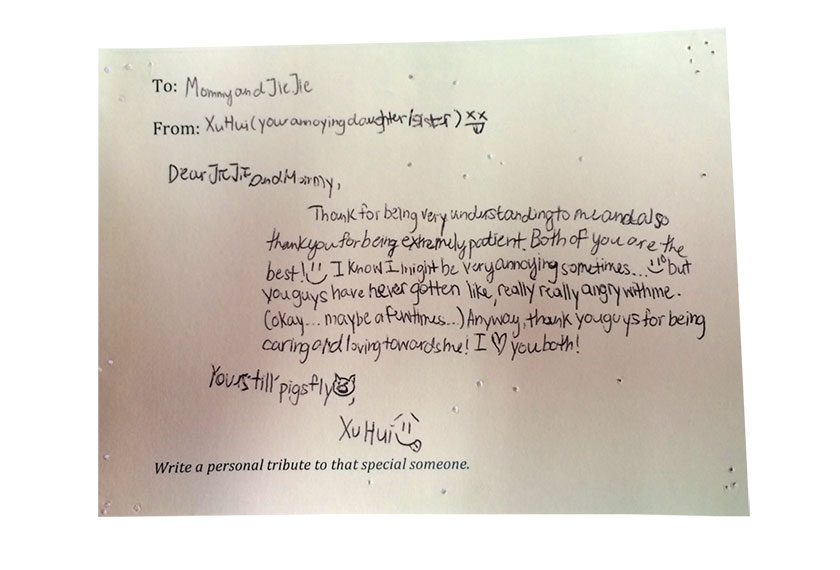 To: Mommy and JIE JIE
From: Xu Hui (your annoying daughter/sister) xx
Dear JIE JIE and Mommy,
Thank for being very understanding to me and also
thank you for being extremely patient. Both of you are the
best! I know I might be very annoying sometimes... but
you guys have never gotten like, really really angry with me.
(okay... maybe a few times...) Anyway, thank you guys for being
caring and loving towards me! I ♡ you both!
Yours till pigs fly,
Xu Hui
Write a personal tribute to that special someone.